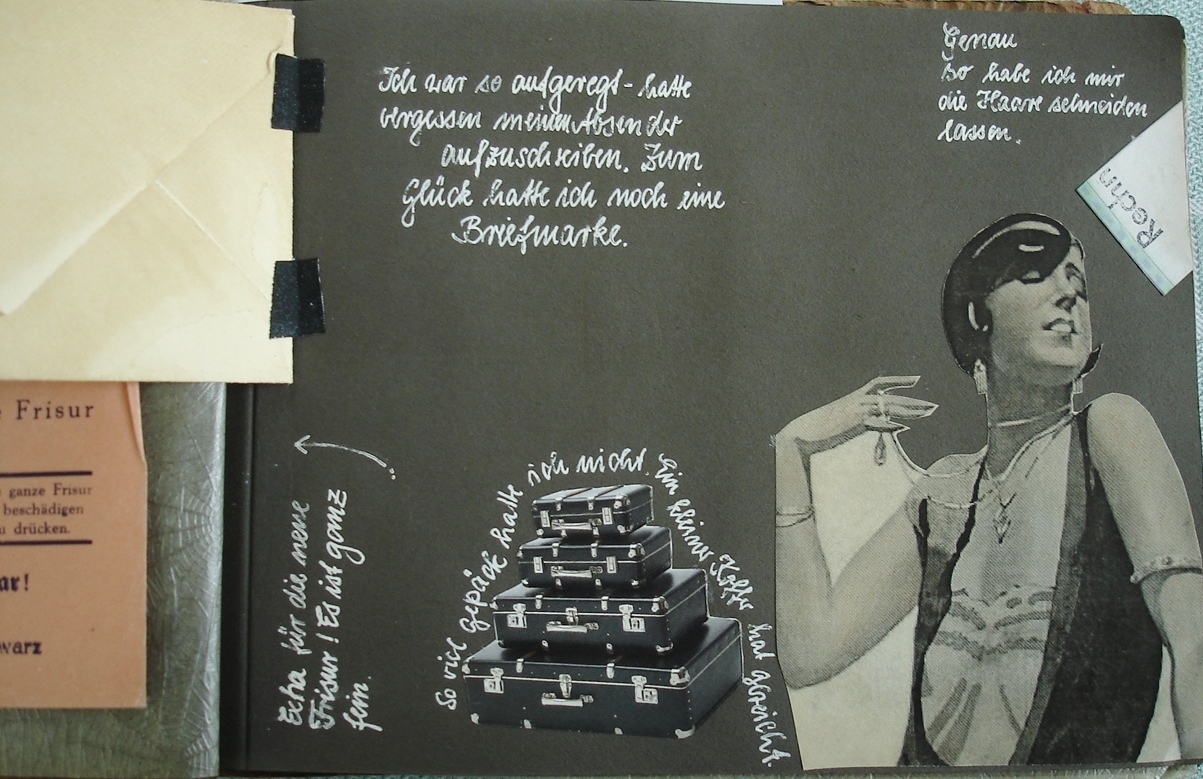 Ich war so aufgeregt - hatte
vergessen meinen Absender
aufzuschreiben. Zum
Glück hatte ich noch eine
Briefmarke.
Genau
so habe ich mir
die Haare schneiden
lassen.
Rechn
e Frisur
ganze Frisur
beschädigen
u drücken.
ar!
warz
Extra für die neue
Frisur! Es ist ganz
fein.
So viel Gepäck hatte ich nicht. Ein kleiner Koffer hat gereicht.